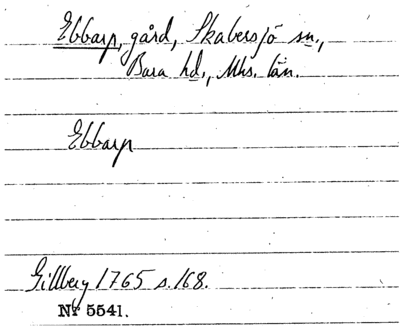 Ebbarp, gård, Skabersjö sn.,
Bara hd., Mhs. län.
Ebbarp
Gillberg 1765 s. 168.
Nr 5541.